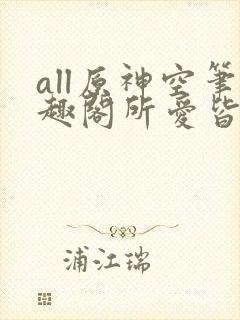 all原神空笔
趣阁所爱皆
浦江瑞